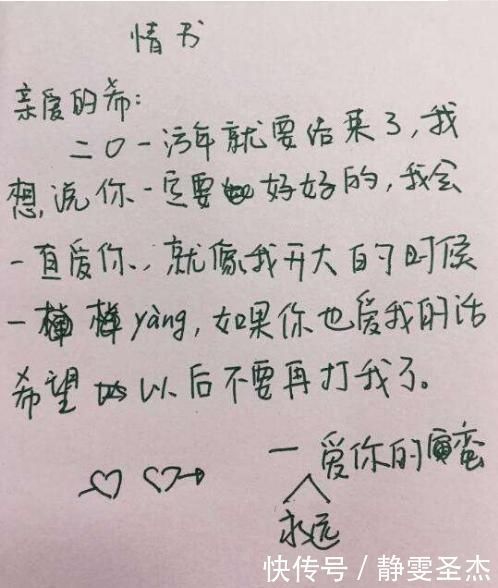 情书
亲爱的希:
二〇一污年就要结束了,我
想,说你一定要好好的,我会
一直爱你,就像我开大的时候
一样yàng,如果你也爱我的话
希望以后不要再打我了。
一爱你的寅蛮
永远
快传号 / 静雯圣杰